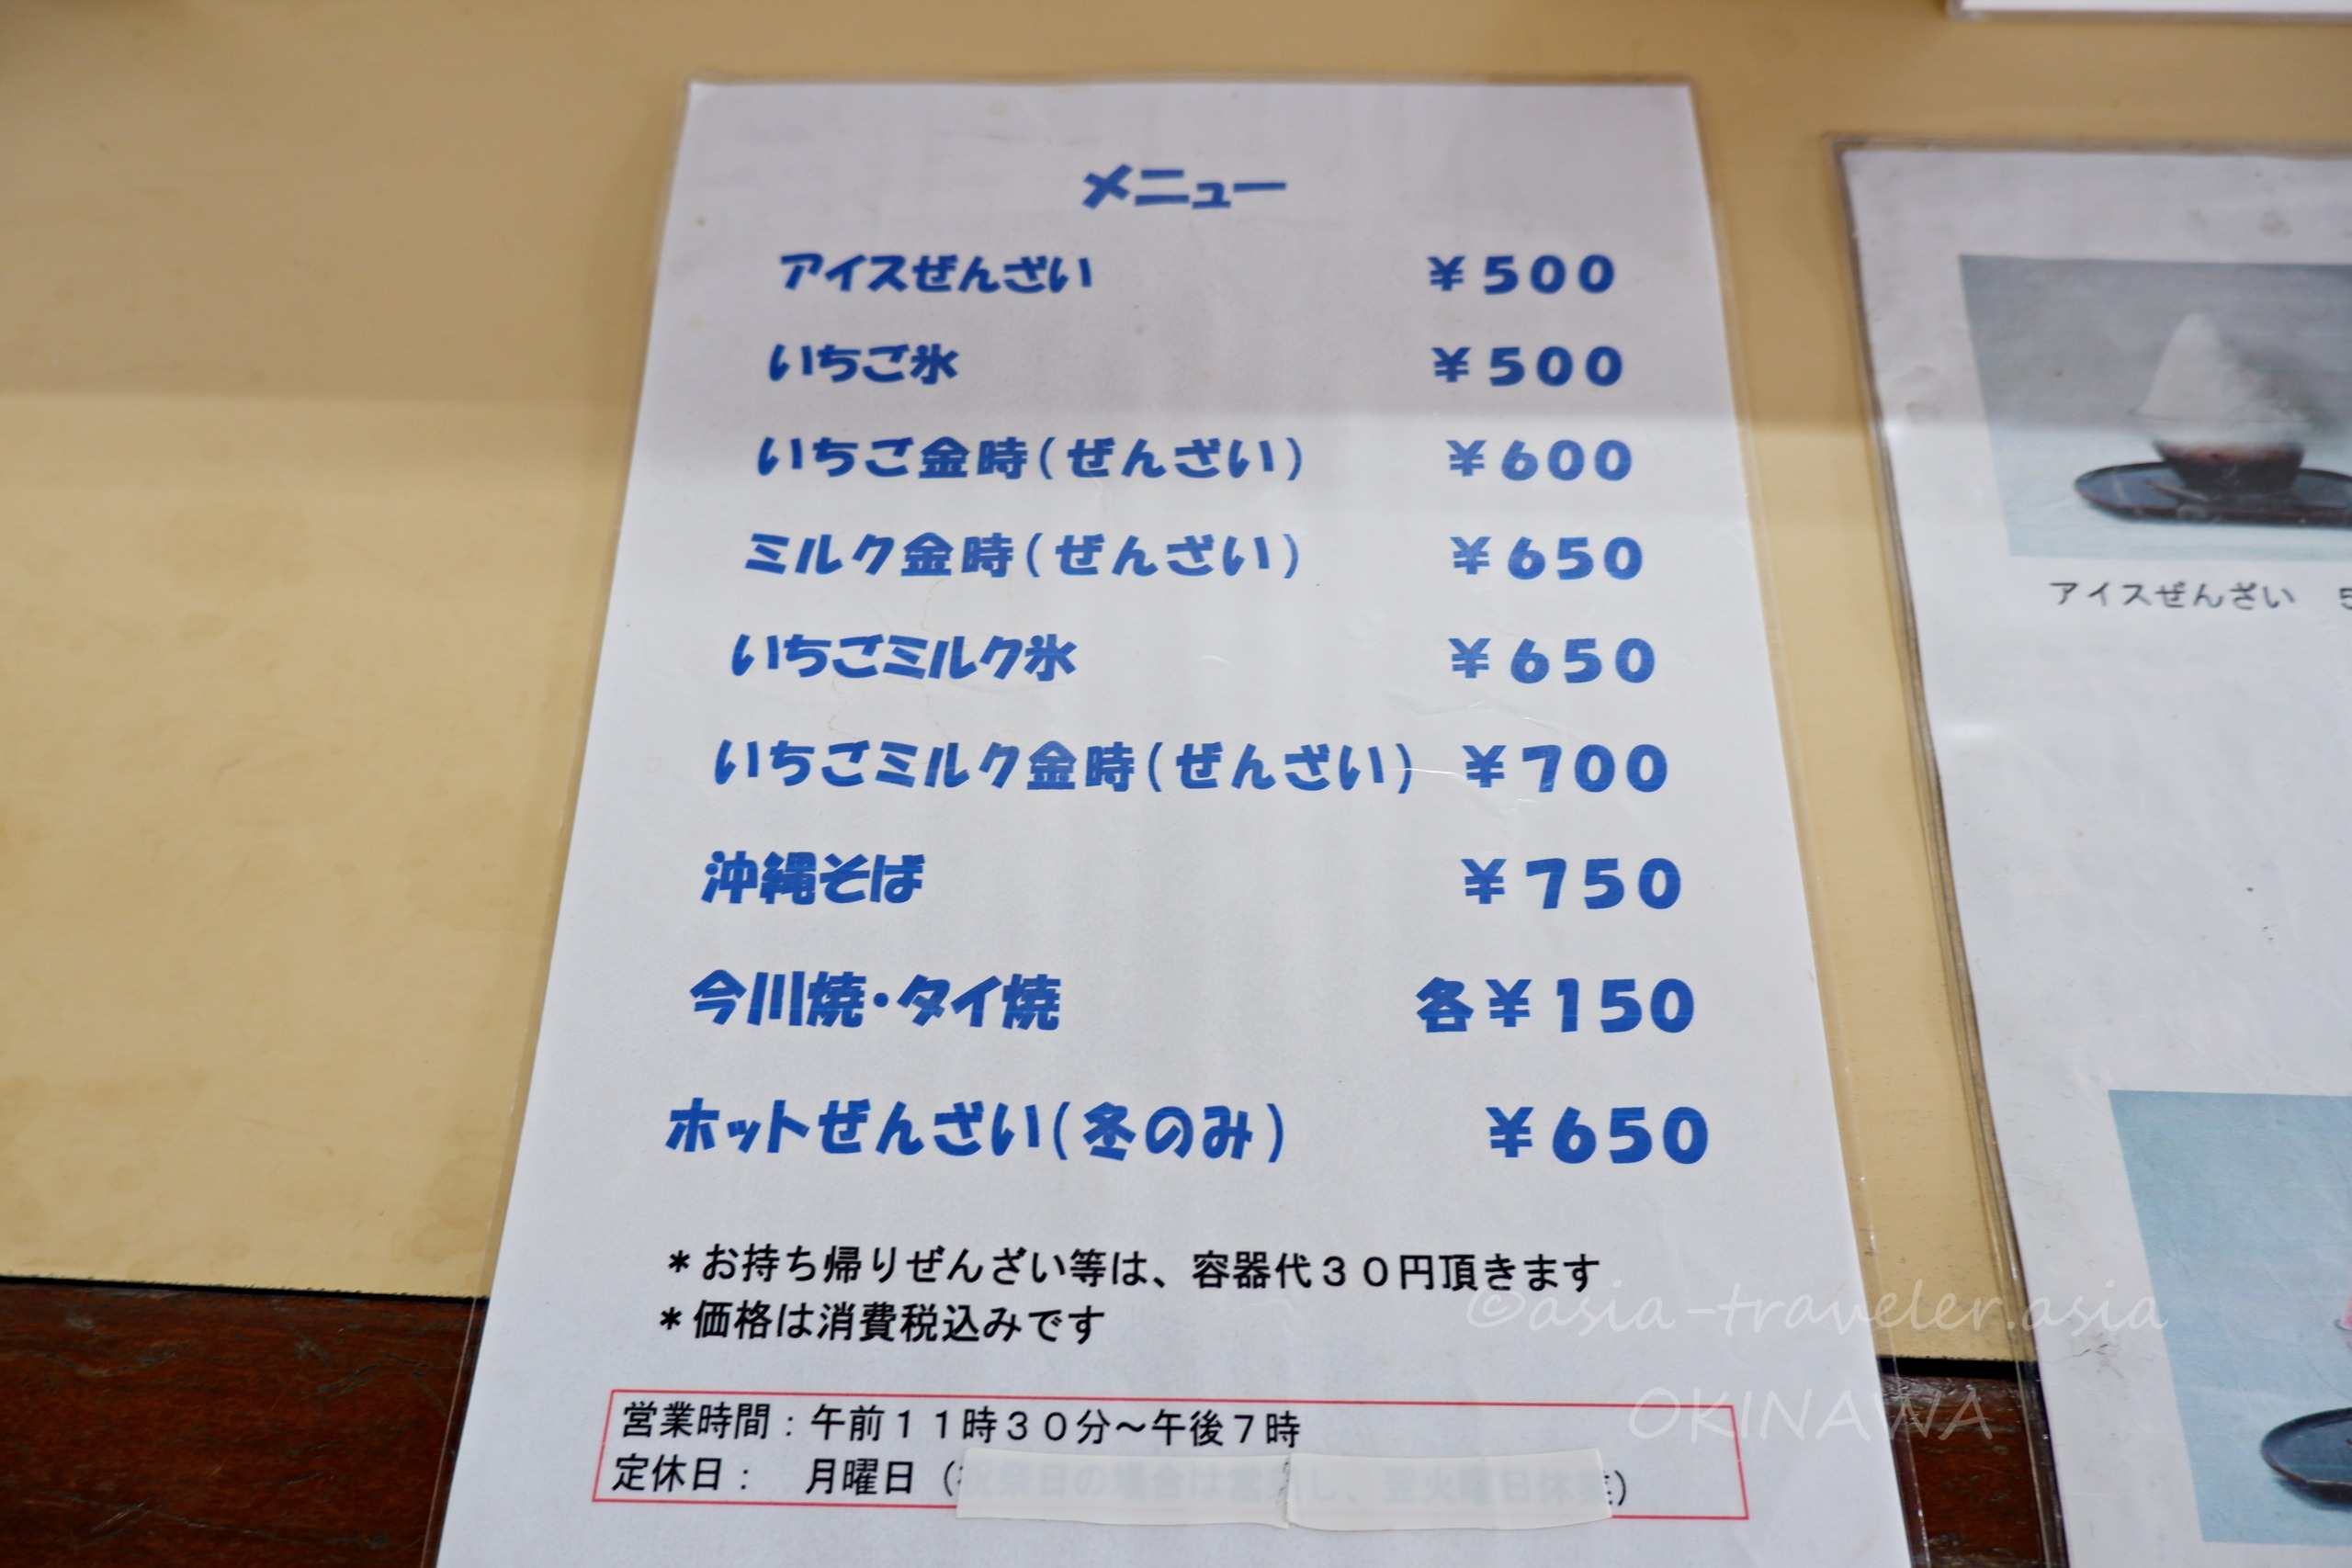 メニュー
アイスぜんざい ¥500
いちご氷 ¥500
いちご金時(ぜんざい) ¥600
ミルク金時(ぜんざい) ¥650
いちごミルク氷 ¥650
いちごミルク金時(ぜんざい) ¥700
沖縄そば ¥750
今川焼・タイ焼 各¥150
ホットぜんざい(冬のみ) ¥650
*お持ち帰りぜんざい等は、容器代30円頂きます
*価格は消費税込みです
営業時間:午前11時30分～午後7時
定休日: 月曜日(祝祭日の場合は営業し、翌火曜日休業)
アイスぜんざい 5
©asia-traveler.asia
OKINAWA